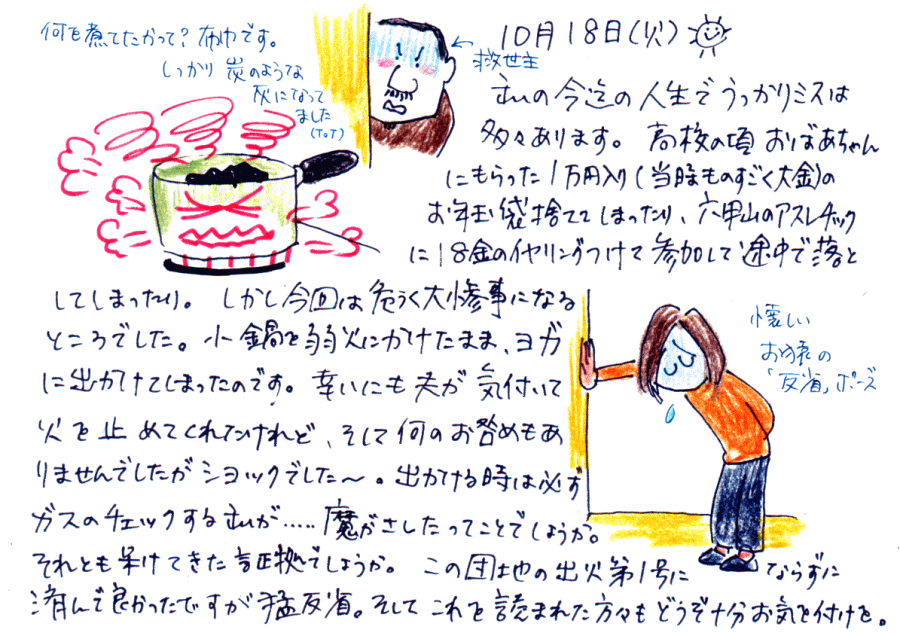 10月18日(火)
何を煮てたかって？布巾です。
しっかり炭のような
灰になって
ました
(ToT)
←救世主
私の今迄の人生でうっかりミスは
多々あります。高校の頃おばあちゃん
にもらった1万円入り(当時ものすごく大金)の
お年玉袋捨ててしまったり、六甲山のアスレチック
に18金のイヤリングつけて参加して途中で落と
してしまったり。しかし今回は危うく大惨事になる
ところでした。小鍋を弱火にかけたまま、ヨガ
に出かけてしまったのです。幸いにも夫が気付いて
火を止めてくれたけれど、そして何のお咎めもあ
りませんでしたがショックでした〜。出かける時は必ず
ガスのチェックする私が.....魔がさしたってことでしょうか。
それとも呆けてきた証拠でしょうか。この団地の出火第1号にならずに
済んで良かったですが猛反省。そしてこれを読まれた方々もどうぞ十分お気を付けを。
懐しい
お猿の
「反省」ポーズ